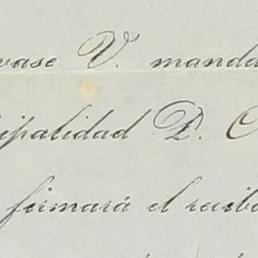 vase V. manda
cipalidad D. C
firmará el recibo